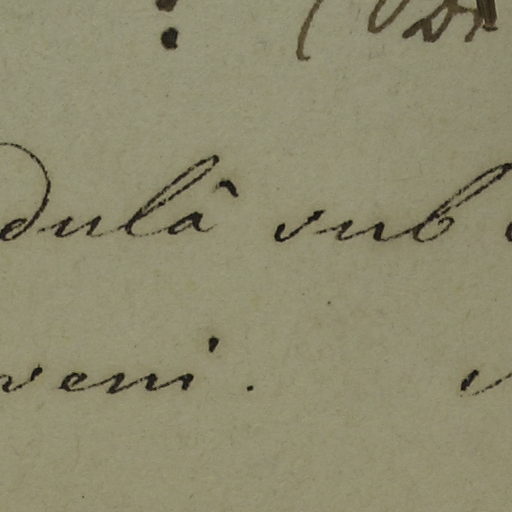 dulâ sub
veni.